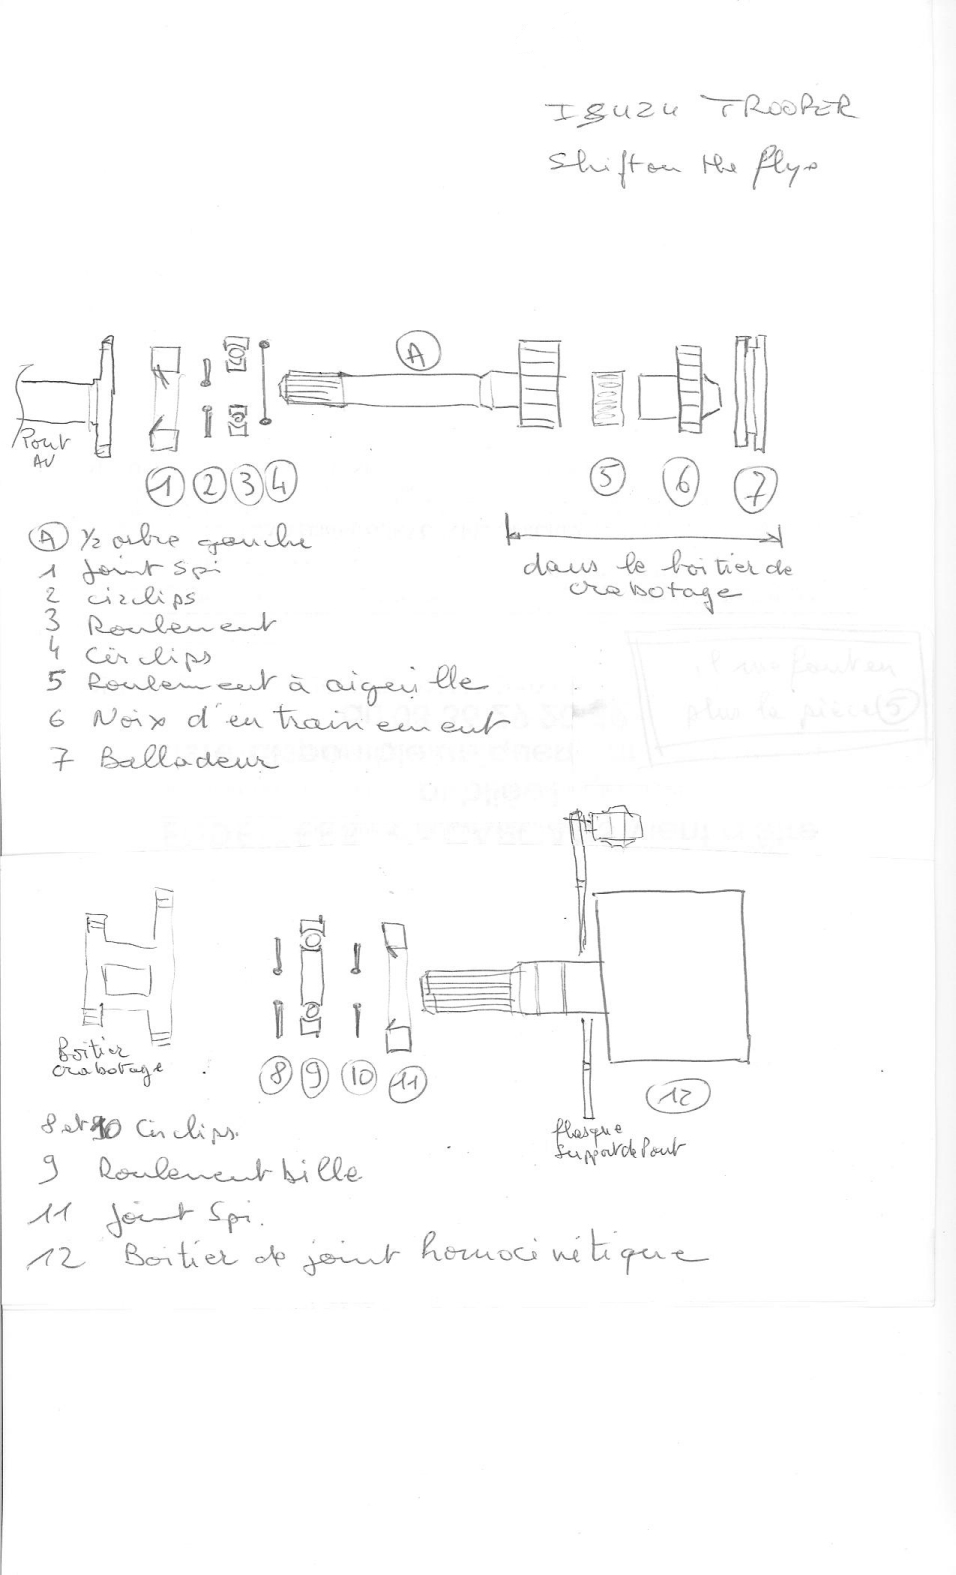 ISUZU TROOPER
Shift on the fly
A
Pont
AV
1 2 3 4 5 6 7
A 1/2 arbre gauche
1 Joint Spi
2 circlips
3 Roulement
4 Circlips
5 Roulement à aigeuille
6 Noix d'entrainement
7 Balladeur
dans le boitier de
crabotage
il me faut en
plus la pièce 5
Boîtier
crabotage
8 9 10 11 12
flasque
support de Pont
8 et 10 Circlips.
9 Roulement bille
11 Joint Spi.
12 Boitier de joint homocinétique